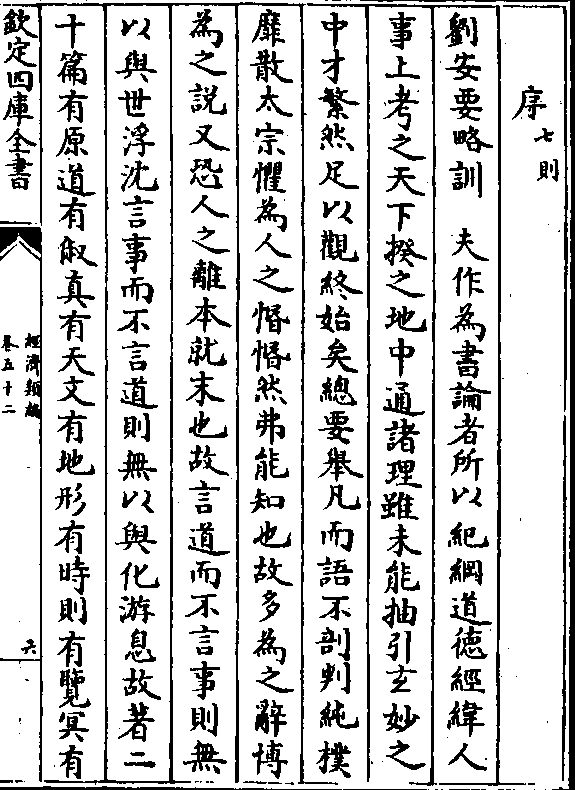 序七則
劉安要略訓　夫作為書論者所以紀綱道德經緯人
事上考之天下揆之地中通諸理雖未能抽引玄妙之
中才繁然足以觀終始矣總要舉凡而語不剖判純樸
靡散太宗懼為人之惛惛然弗能知也故多為之辭博
為之說又恐人之離本就末也故言道而不言事則無
以與世浮沈言事而不言道則無以與化游息故著二
十篇有原道有俶真有天文有地形有時則有覽冥有
欽定四庫全書
經濟類編
卷五十二
六